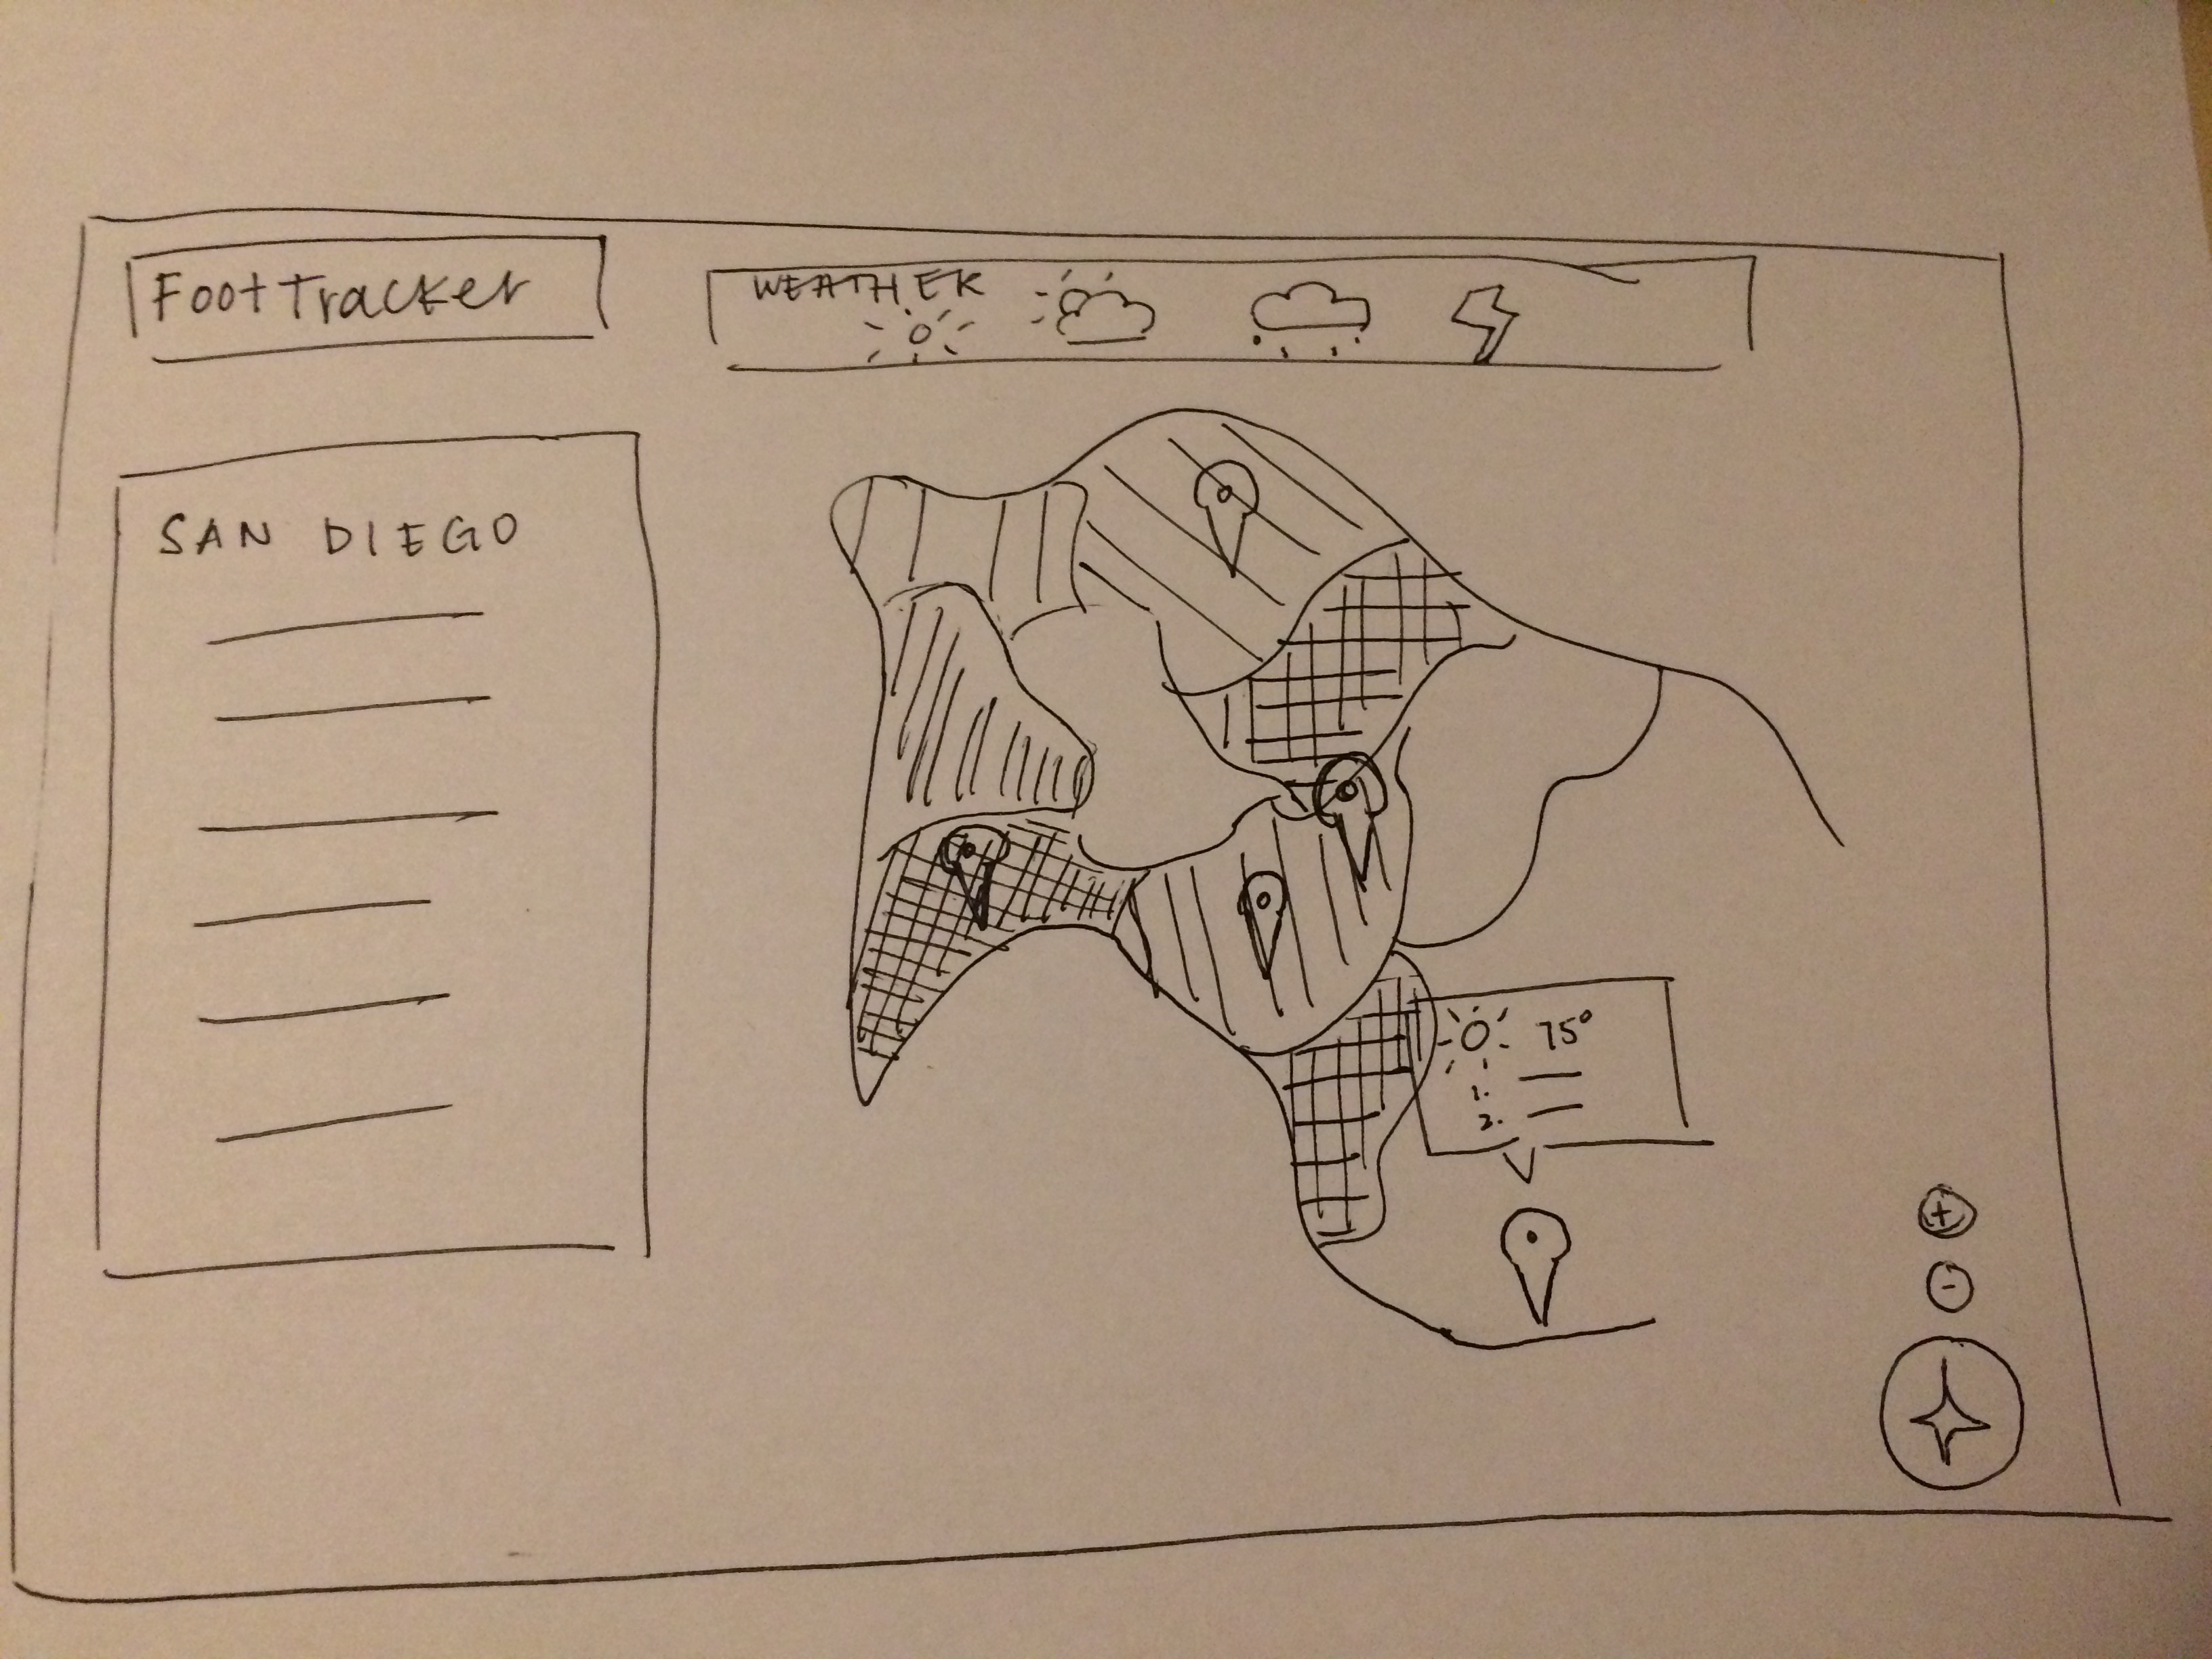 FootTracker
WEATHER
SAN DIEGO
75°
1.
2.
+
-